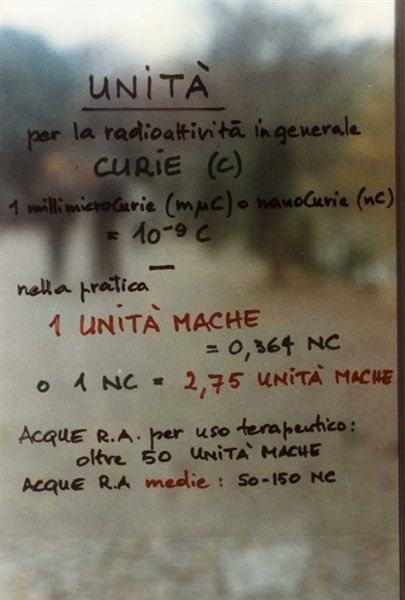 UNITÀ
per la radioattività in generale
CURIE (C)
1 millimicroCurie (mμC) o nanoCurie (nC)
= 10⁻⁹ C
nella pratica
1 UNITÀ MACHE
= 0,364 NC
o 1 NC = 2,75 UNITÀ MACHE
ACQUE R.A. per uso terapeutico:
oltre 50 UNITÀ MACHE
ACQUE R.A medie: 50-150 NC